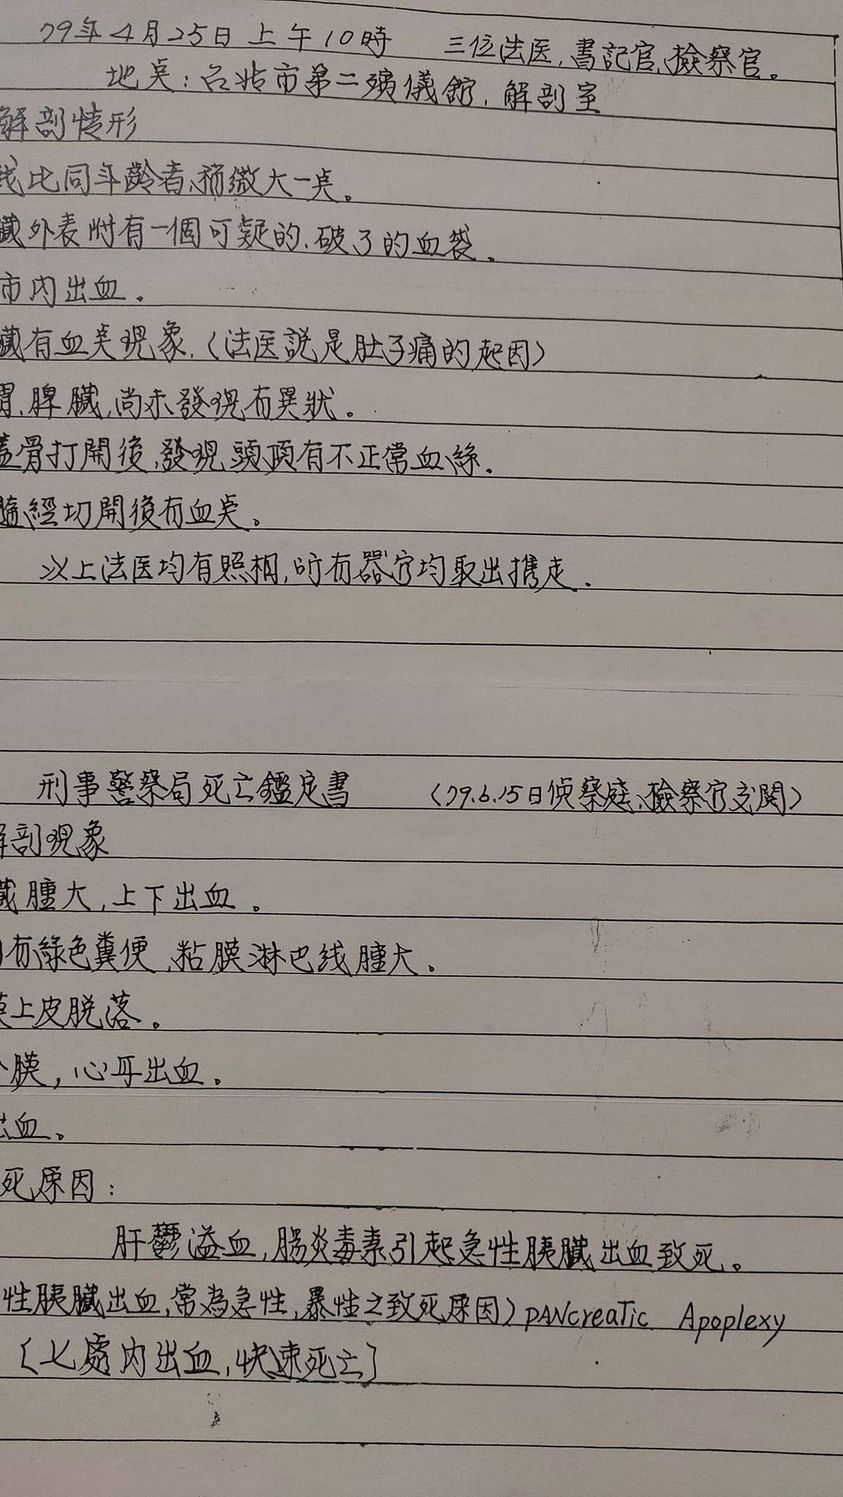 79年4月25日上午10時 三位法医,書記官、檢察官。
地点:台北市第二殯儀館,解剖室
解剖情形
线比同年齡者、稍微大一点。
臟外表附有一個可疑的,破了的血袋。
市內出血。
臟有血点現象,(法医説是肚子痛的起因)
胃,脾臟,尚未發現有異狀。
蓋骨打開後,發現頭頂有不正常血絲.
髓經切開後有血点。
以上法医均有照相,所有器官均取出携走.
刑事警察局死亡鑑定書 (79.6.15日偵察庭、檢察官文閱)
解剖現象
臟腫大,上下出血。
有綠色糞便,粘膜淋巴线腫大。
膜上皮脱落。
外膜,心耳出血。
出血。
死原因:
肝鬱溢血,腸炎毒素引起急性胰臟出血致死。
性胰臟出血,常為急性,暴性之致死原因)PANcreaTic Apoplexy
[七處內出血,快速死亡]